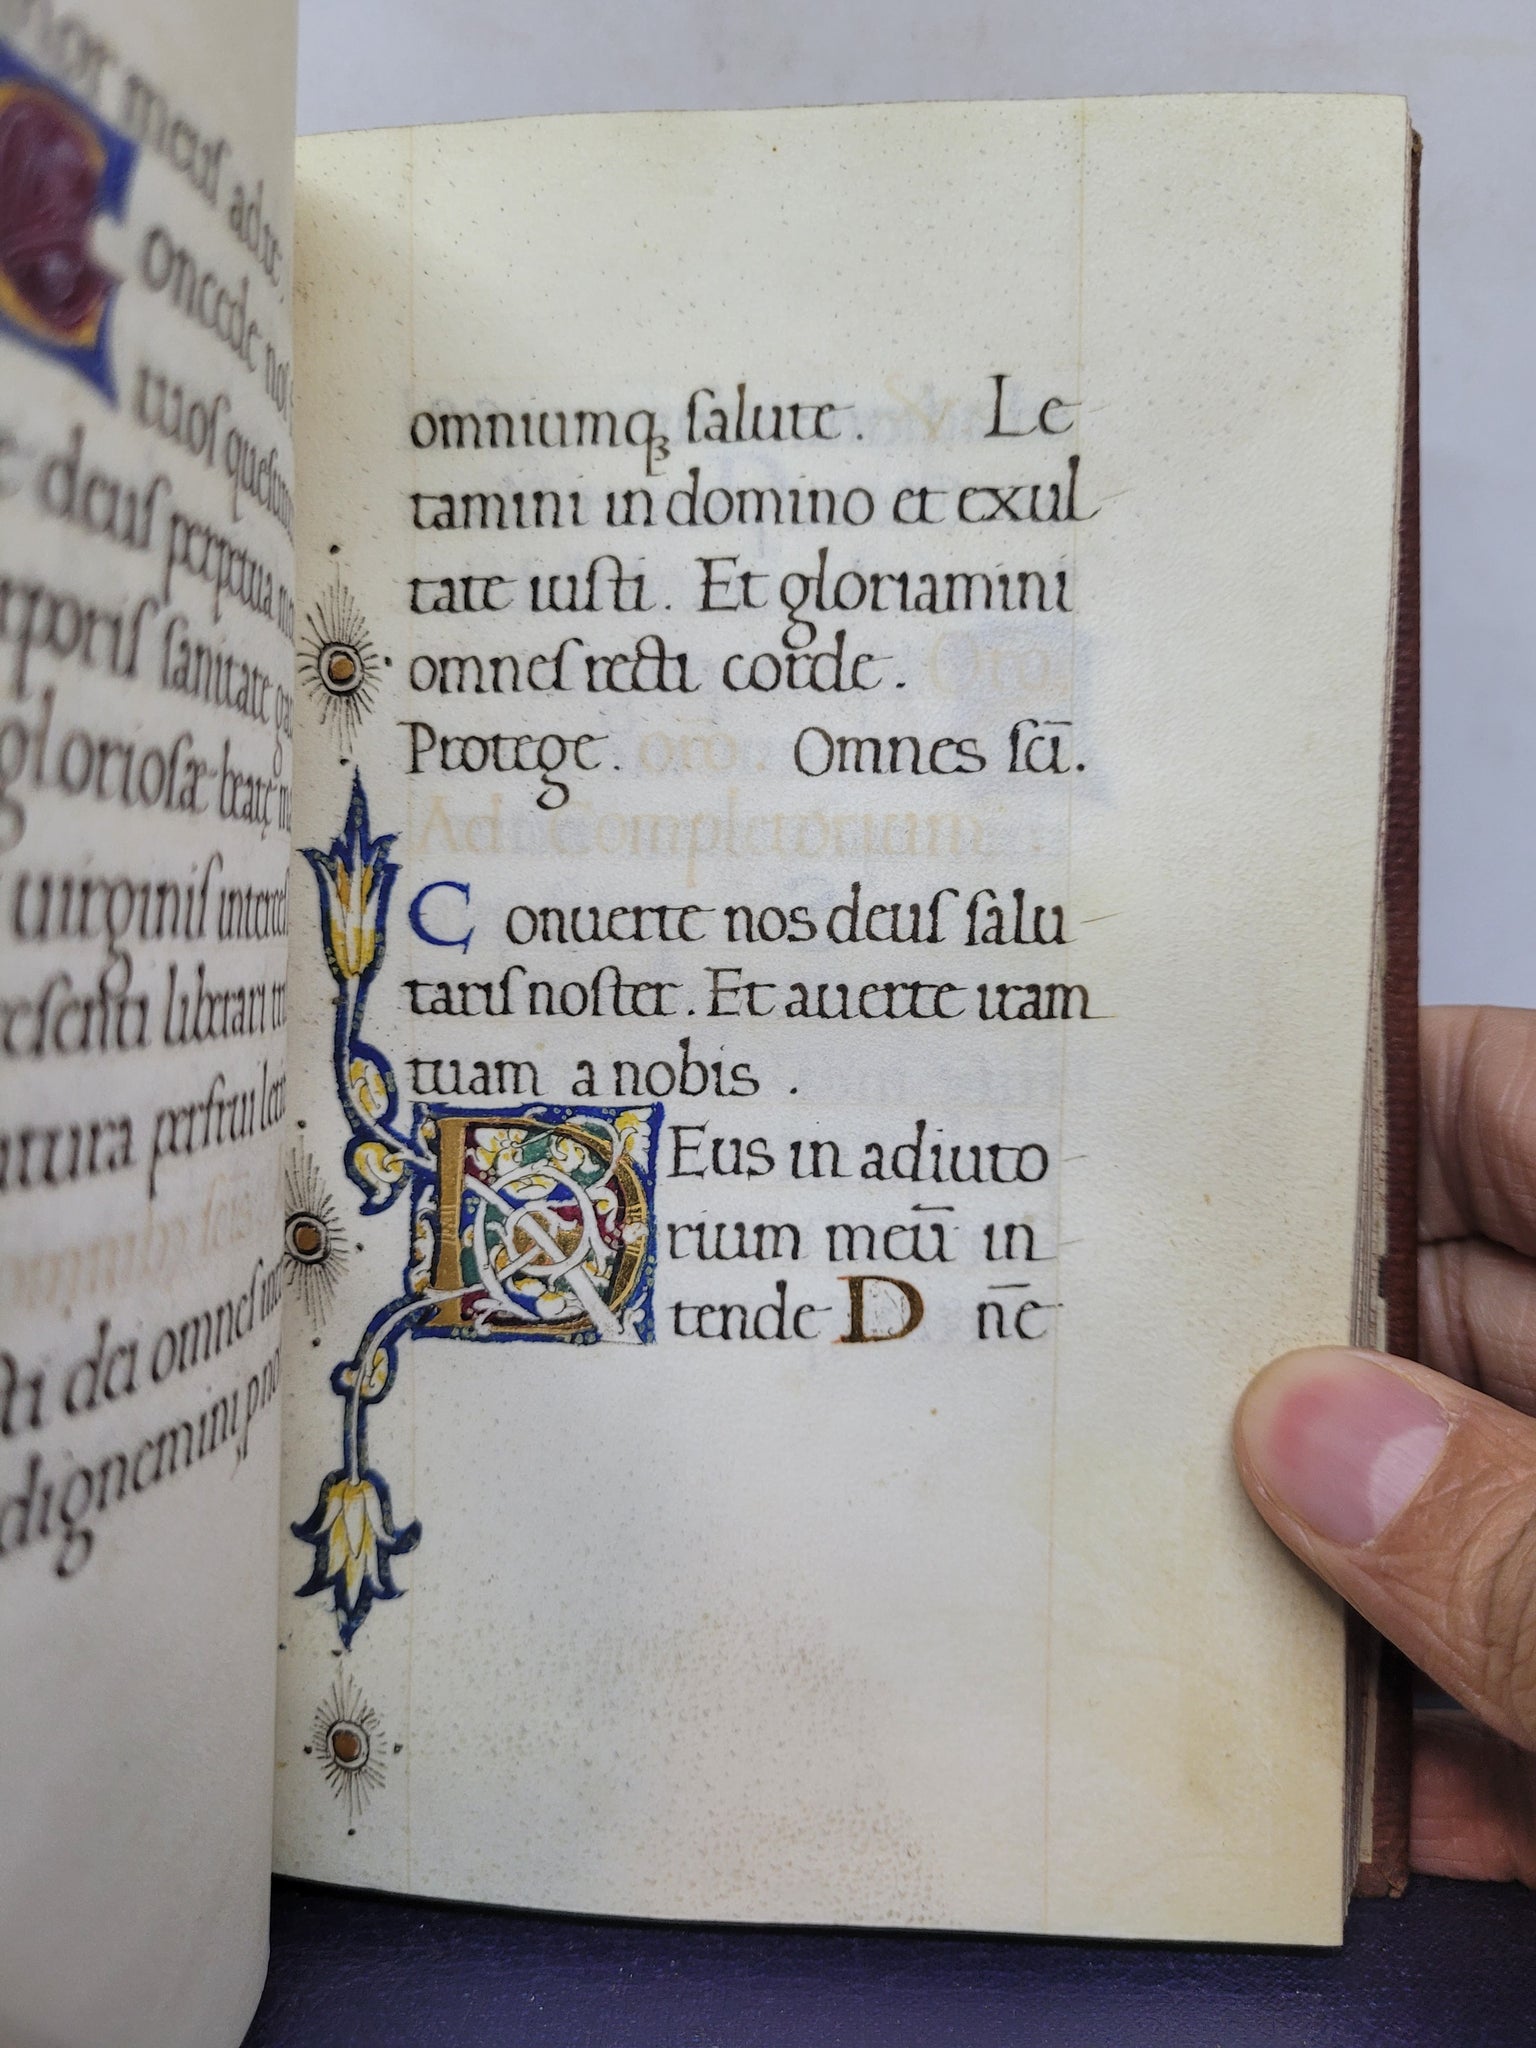 meus adiu
oncede no
uos quesum
deus perpetua
rporis sanitate
gloriosæ beatę
uirginis interces
liberari
perfrui
sti dei omnes
dignemini p no
omniumqꝫ salute. V Le
tamini in domino et exul
tate iusti. Et gloriamini
omnes recti corde. Oro.
Protege. oro. Omnes scī.
Ad Completorium.
Conuerte nos deus salu
taris noster. Et auerte iram
tuam a nobis.
DEus in adiuto
rium meū in
tende D nē